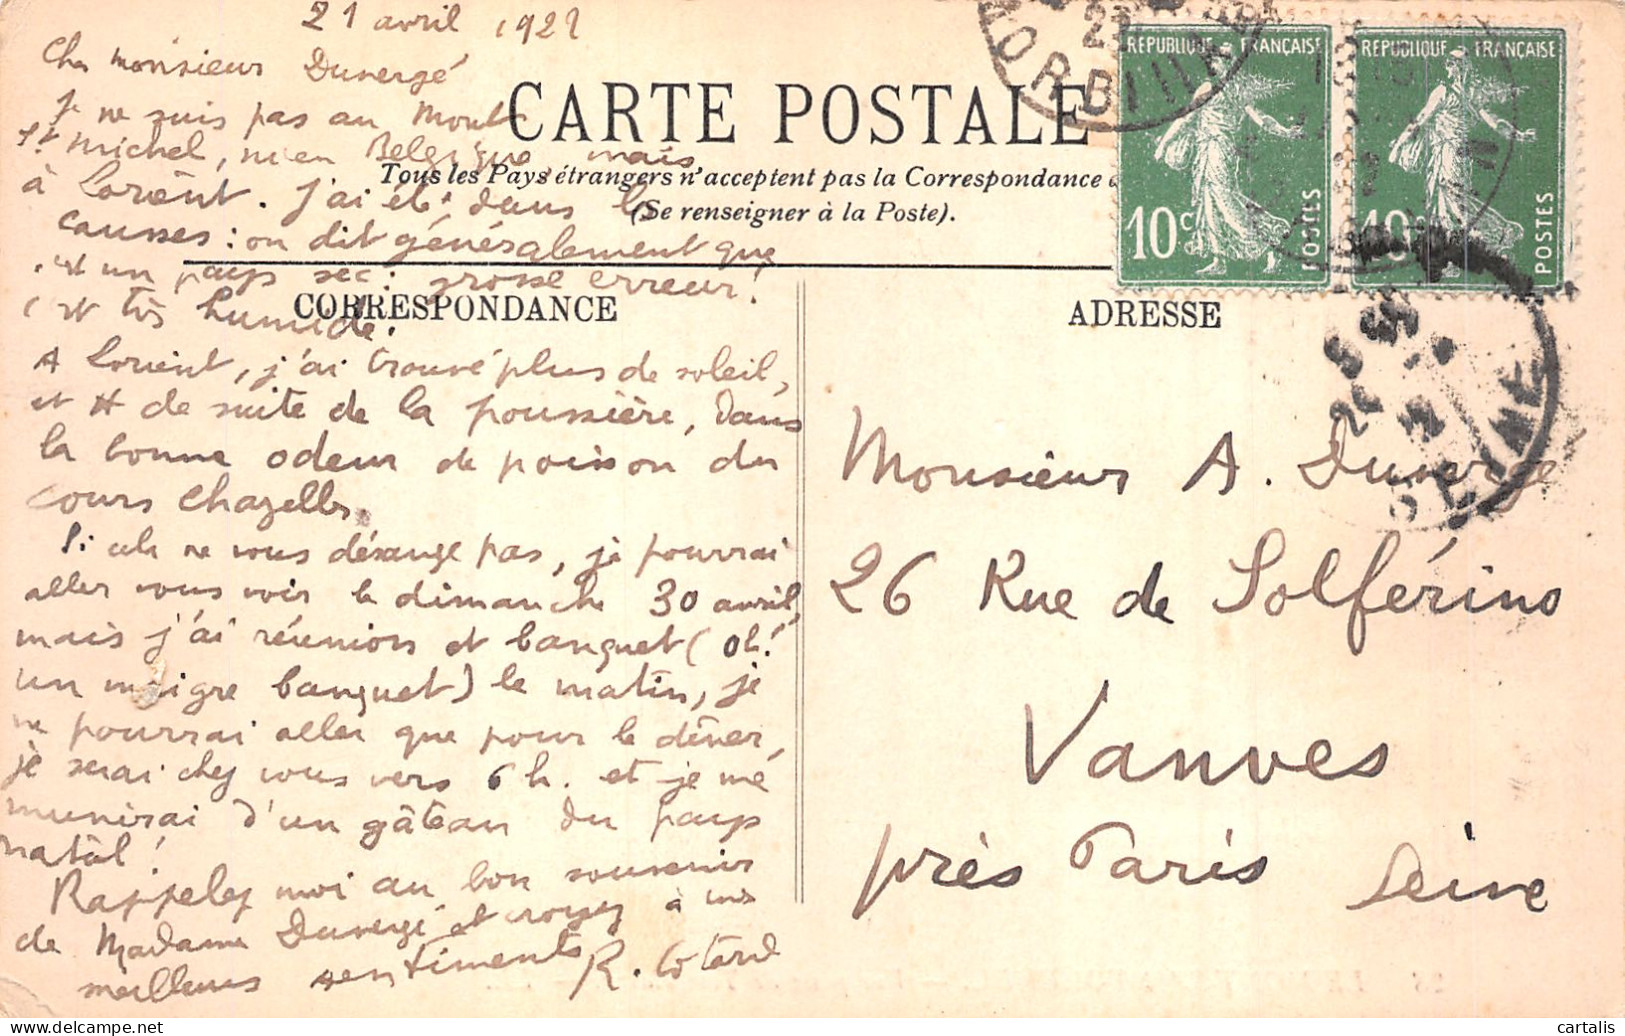 21 avril 1922
Cher monsieur Duvergé
je ne suis pas au Mont
St michel, ni en Belgique, mais
à Lorient. J'ai été dans les
causses : on dit généralement que
c'est un pays sec : grosse erreur !
c'est très humide.
A Lorient, j'ai trouvé plus de soleil,
et de suite de la poussière, dans
la bonne odeur de poisson du
cours Chazelles.
Si cela ne vous dérange pas, je pourrai
aller vous voir le dimanche 30 avril,
mais j'ai réunion et banquet (oh !
un maigre banquet) le matin, je
ne pourrai aller que pour le dîner,
je serai chez vous vers 6 h. et je me
munirai d'un gâteau du pays
natal !
Rappelez moi au bon souvenir
de Madame Duvergé et croyez à mes
meilleurs sentiments
R. Cotard
CARTE POSTALE
Tous les Pays étrangers n'acceptent pas la Correspondance
(Se renseigner à la Poste).
CORRESPONDANCE
ADRESSE
REPUBLIQUE FRANÇAISE
10c POSTES
REPUBLIQUE FRANÇAISE
10c POSTES
MORBIHAN
SEINE
Monsieur A. Duvergé
26 Rue de Solférino
Vanves
près Paris Seine
© cartalis
www.delcampe.net
cartalis